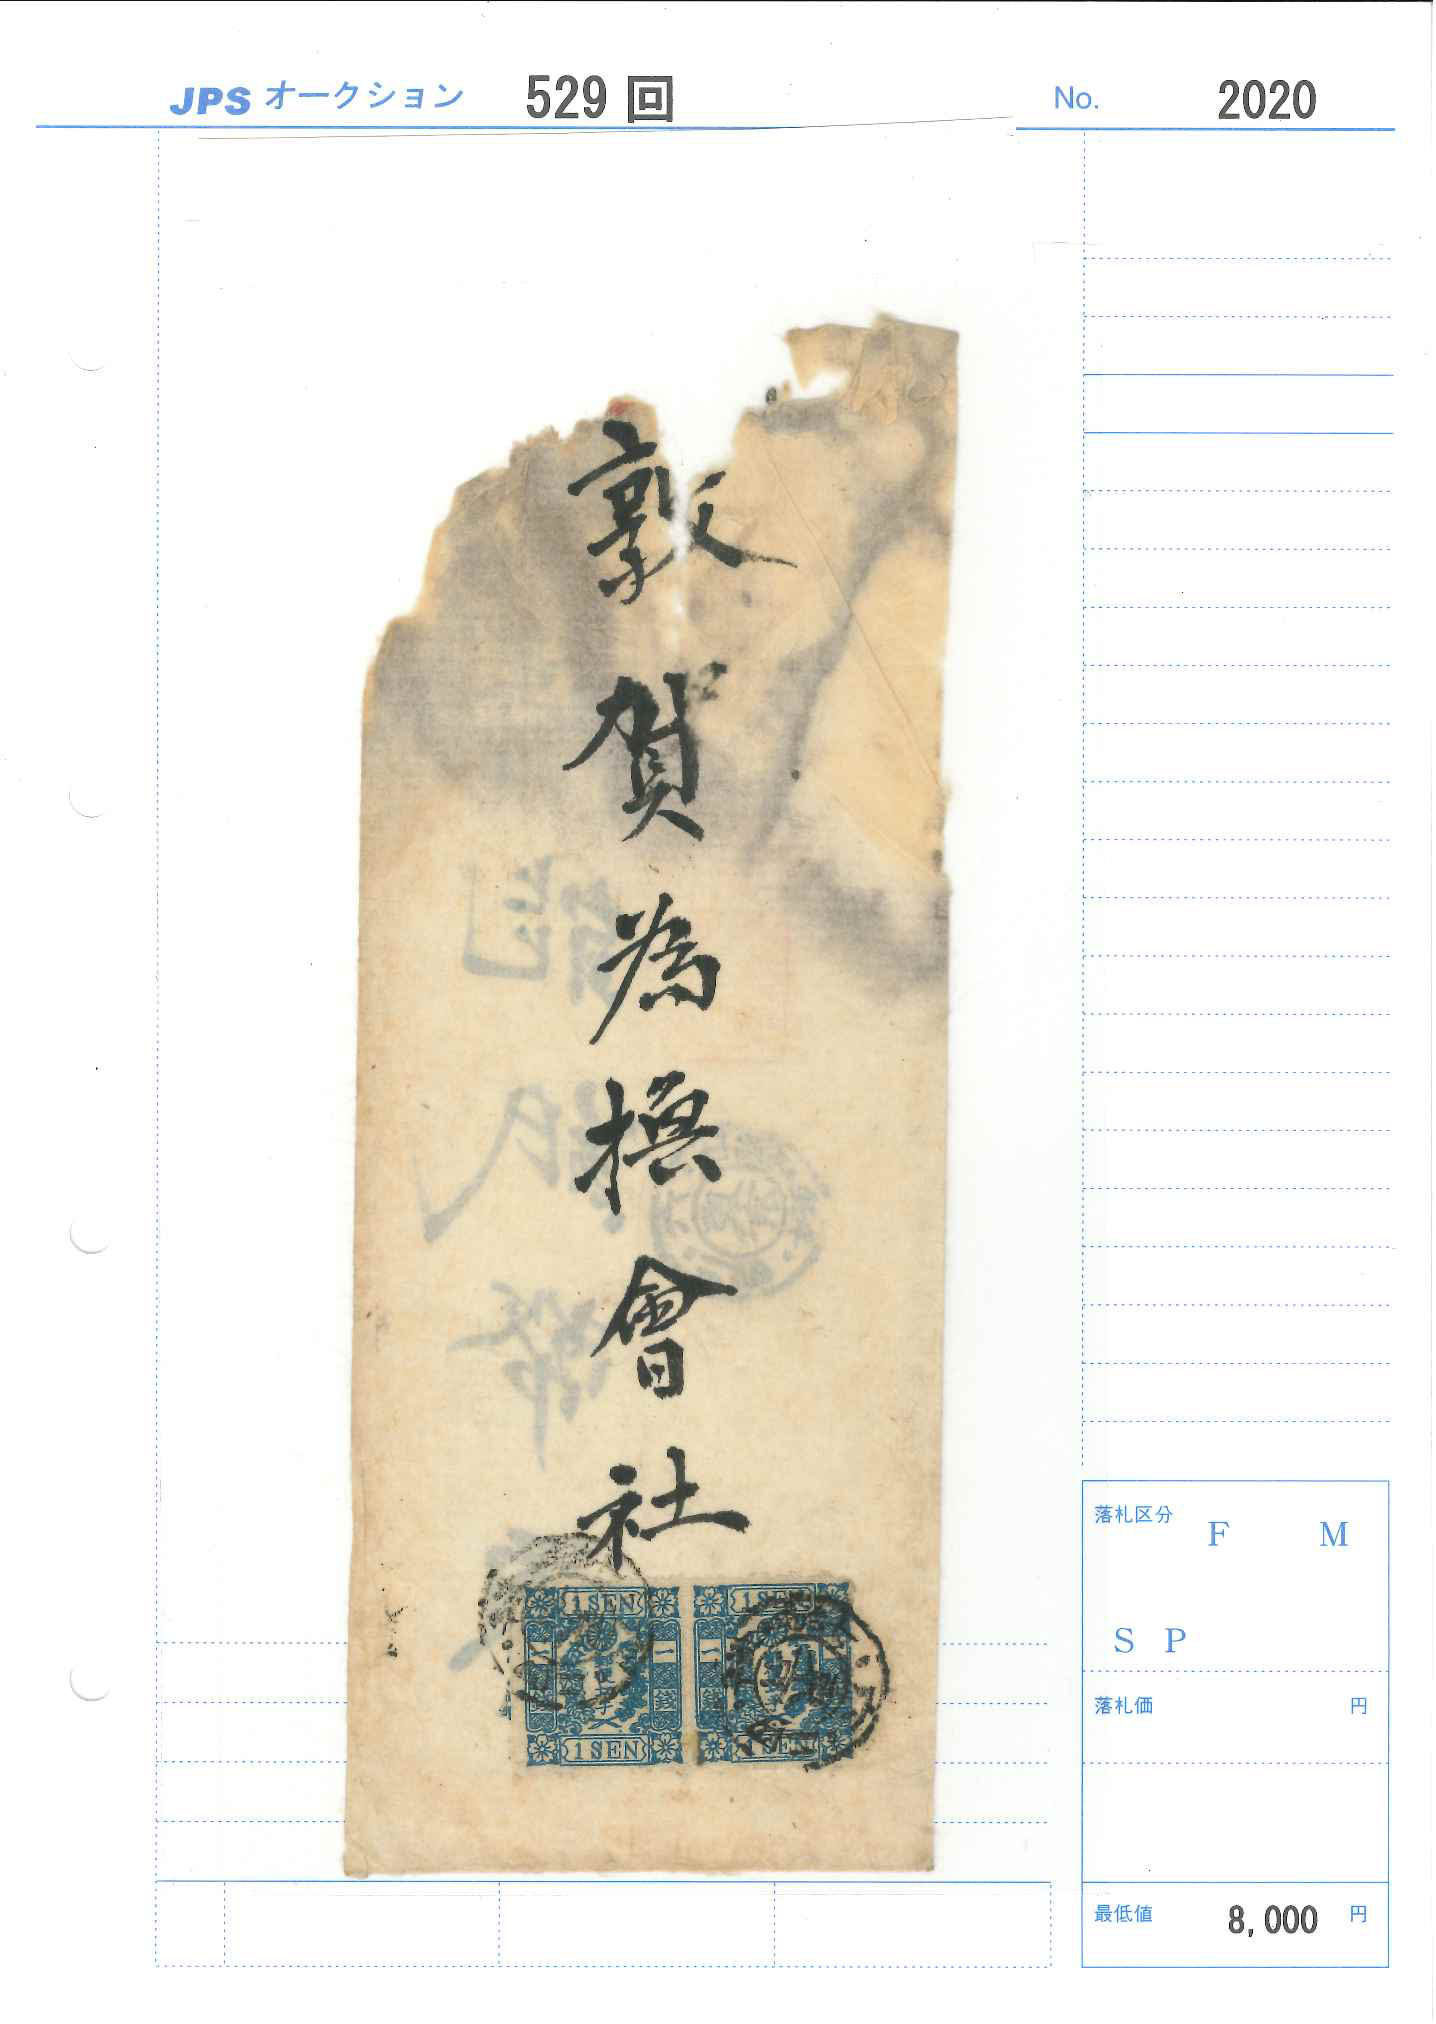 JPS オークション 529 回 No. 2020
敦賀為換會社
1 SEN 1 SEN
一 一 一
銭 銭
1 SEN 1 SEN
落札区分 F M
S P
落札価 円
最低値 8,000 円